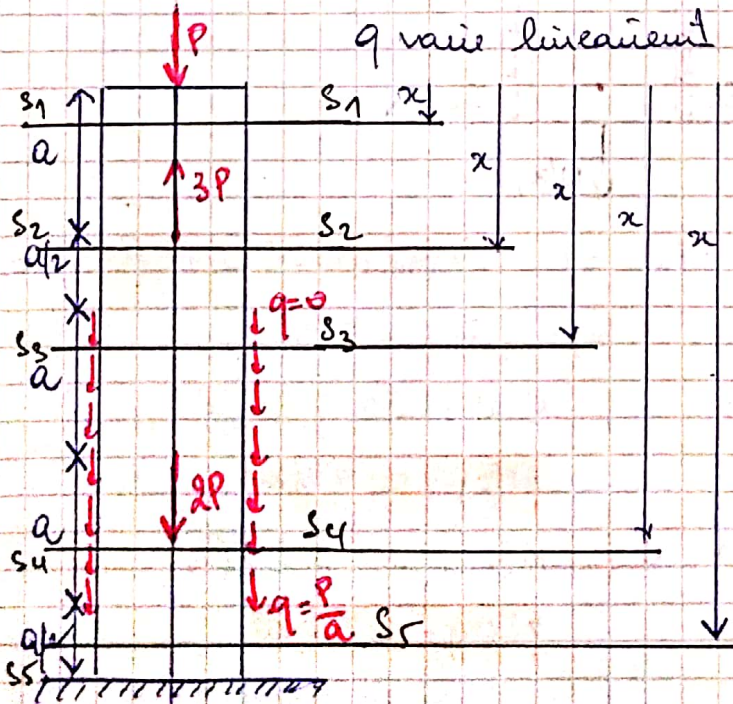 q varie linéairement
P
S1 S1 x
a
3P x
S2 S2 x
a/2 x x
q=0
S3 S3
a
2P
a S4
S4
q=P/a S5
S5